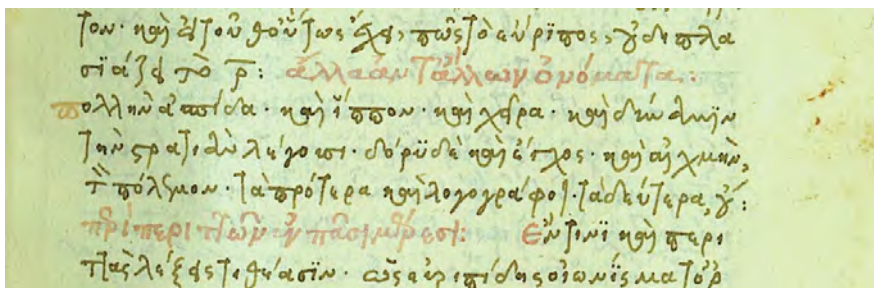 τον· καὶ ἐκ τοῦ θοὕτως ἔχει, πῶς τὸ εὐρϊπος, οὐ διπλα
σϊάζει τὸ ρ̅: ἄλλα ἀντ' ἄλλων ὀνόματα.:
πολλὴν ἀσπίδα· καὶ ἵππον· καὶ χεῖρα· καὶ δύναμϊν
τὴν στρατιὰν λέγουσι· δόρϋ δὲ καὶ ἔγχος· καὶ αἰχμὴν,
τὸν πόλεμον· τὰ πρότερα καὶ λογογράφοι· τὰ δεύτερα, οὔ:
περὶ τῶν ἐν πᾶσι μέρεσι: Ἐν τισϊ καὶ περι
τὰς λέξεις τιθέασϊν· ὡς εὐριπίδης οἰωνϊσμάτορ